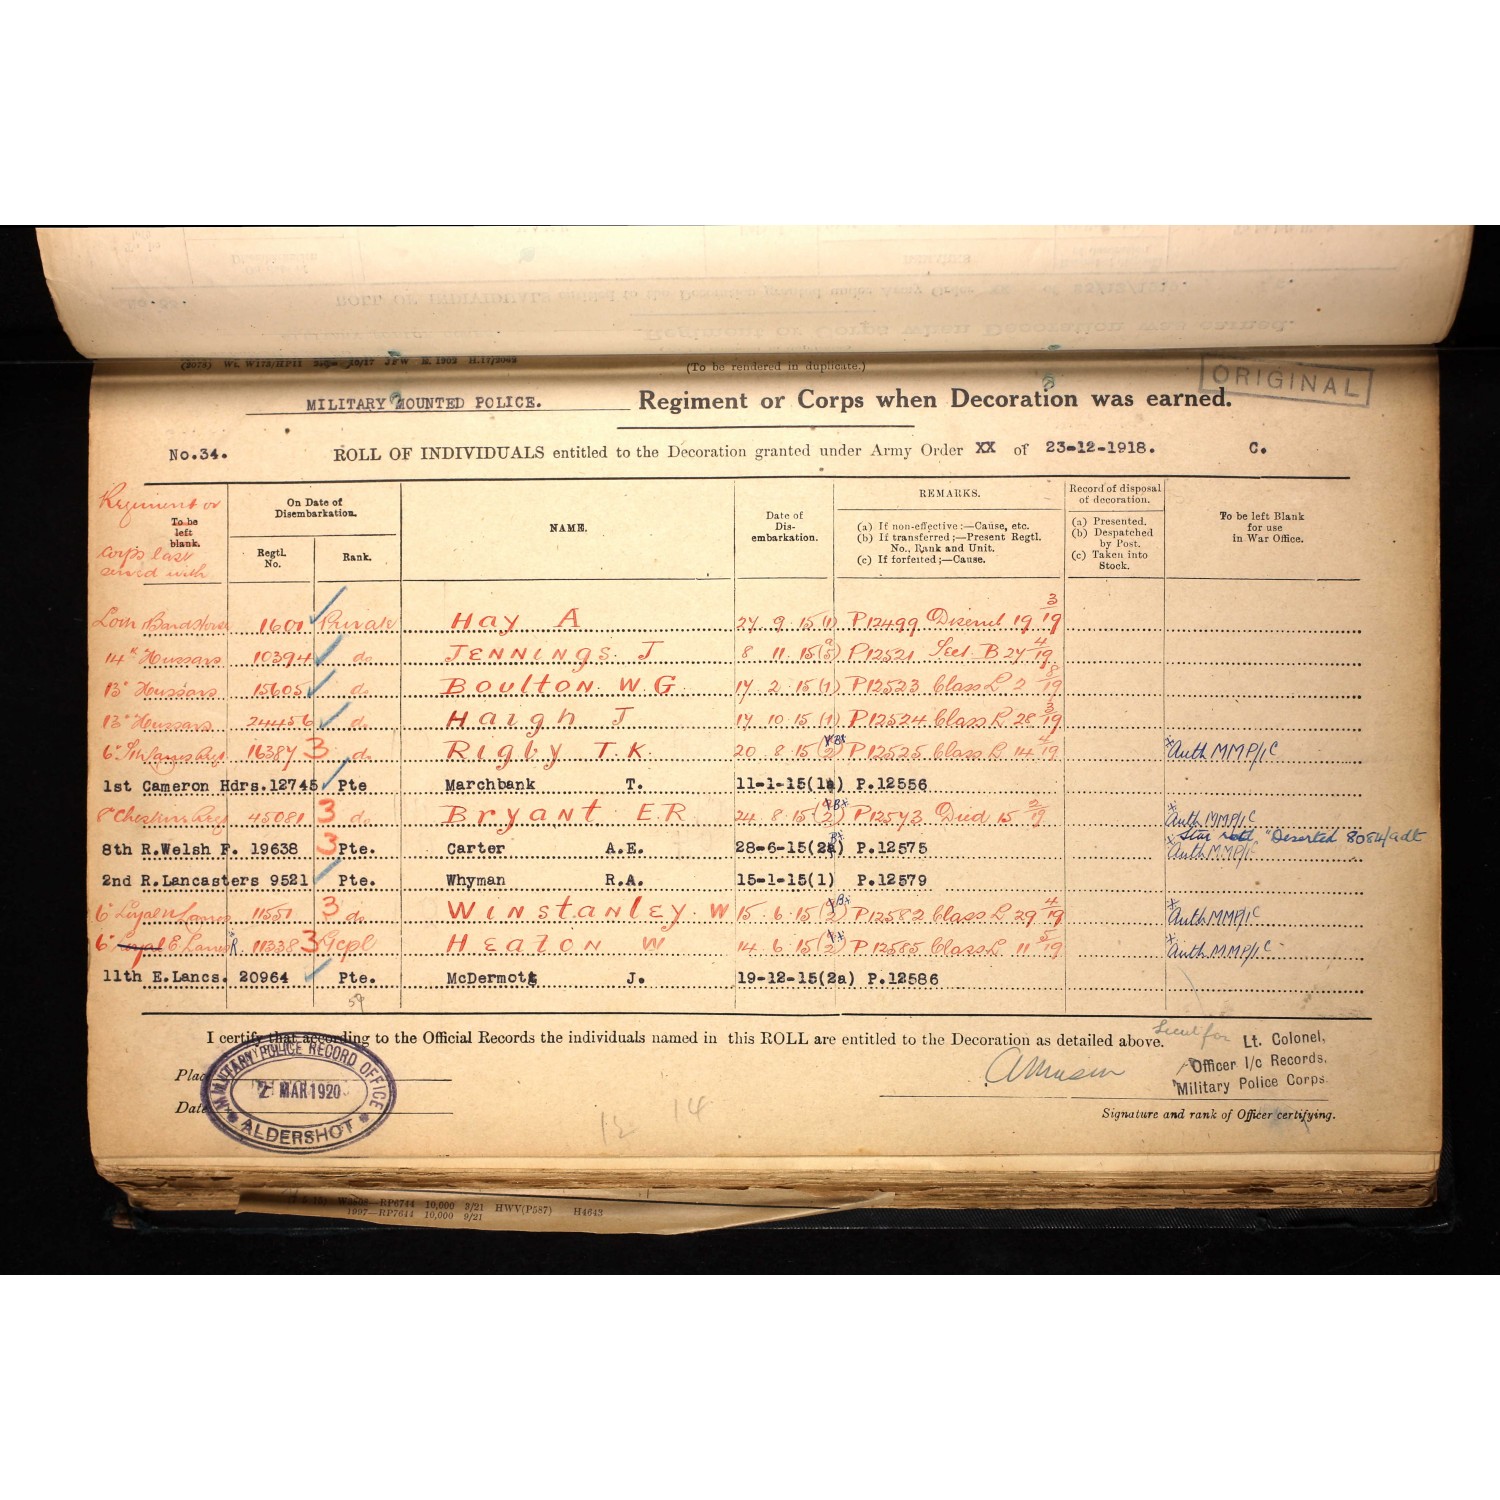 (2073) Wt. W173/HP11 10/17 H.17/2042
(To be rendered in duplicate.)
ORIGINAL
MILITARY MOUNTED POLICE. Regiment or Corps when Decoration was earned.
No.34. ROLL OF INDIVIDUALS entitled to the Decoration granted under Army Order XX of 23-12-1918. C.
Regiment or
corps last
served with
To be
left
blank.
On Date of
Disembarkation.
Regtl.
No.
Rank.
NAME.
Date of
Dis-
embarkation.
REMARKS.
(a) If non-effective:—Cause, etc.
(b) If transferred;—Present Regtl.
No., Rank and Unit.
(c) If forfeited;—Cause.
Record of disposal
of decoration.
(a) Presented.
(b) Despatched
by Post.
(c) Taken into
Stock.
To be left Blank
for use
in War Office.
1601 Private Hay A 27 9 15 (1) P12499 19 3/19
14th Hussars 10394 do JENNINGS. J 8 11 15 P12521 Sect B 27 4/19
13th Hussars 15605 do BOULTON W.G. 17 2 15 (1) P12523 Class L 2 8/19
13th Hussars 24456 do Haigh J 17 10 15 (1) P12524 Class L 28 3/19
16387 3 do Rigby T.K. 20 8 15 (2) Bx P12525 Class L 14 4/19 Auth MMP/1C
1st Cameron Hdrs. 12745 Pte Marchbank T. 11-1-15(1a) P.12556
8th Cheshire Regt 45081 3 do Bryant E R 24 8 15 (2) Bx P12572 Died 15 2/19 Auth MMP/1C
Star "Deserted 8084/adt
8th R.Welsh F. 19638 3 Pte. Carter A.E. 28-6-15(2a) P.12575 Auth MMP/1C
2nd R.Lancasters 9521 Pte. Whyman R.A. 15-1-15(1) P.12579
6th Loyal N Lancs 11551 3 do WINSTANLEY. W 15 6 15 (2) Bx P12582 Class L 29 4/19 Auth MMP/1C
6th E. Lancs R. 11338 3 Heaton W 14 6 15 (2) P12585 Class L 11 5/19 Auth MMP/1C
11th E.Lancs. 20964 Pte. McDermott J. 19-12-15(2a) P.12586
I certify that according to the Official Records the individuals named in this ROLL are entitled to the Decoration as detailed above.
Lieut for Lt. Colonel,
Officer I/c Records.
Military Police Corps.
Place
Date
MILITARY POLICE RECORD OFFICE
2 MAR 1920
ALDERSHOT
Signature and rank of Officer certifying.
14
RP6744 10,000 3/21 HWV(P587) H4643
1997—RP7644 10,000 9/21